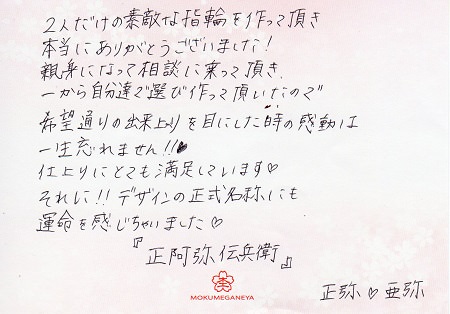 2人だけの素敵な指輪を作って頂き
本当にありがとうございました!
親身になって相談に乗って頂き、
一から自分達で選び作って頂いたので
希望通りの出来上りを目にした時の感動は
一生忘れません!!♥
仕上りにとても満足しています♡
それに!!デザインの正式名称にも
運命を感じちゃいました♡
『正阿弥伝兵衛』
MOKUMEGANEYA
正弥♡亜弥